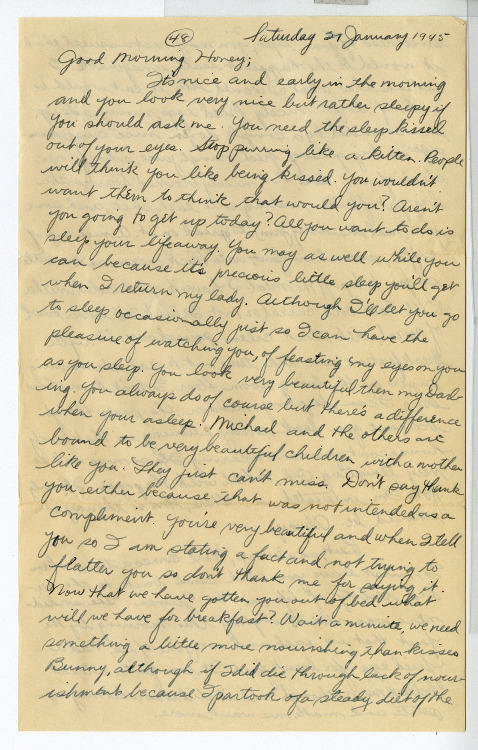 (48) Saturday 27 January 1945
Good Morning Honey;
It's nice and early in the morning
and you look very nice but rather sleepy if
you should ask me. You need the sleep kissed
out of your eyes. Stop purring like a kitten. People
will think you like being kissed. You wouldn't
want them to think that would you? Aren't
you going to get up today? All you want to do is
sleep your life away. You may as well while you
can because it's precious little sleep you'll get
when I return my lady. Although I'll let you go
to sleep occasionally just so I can have the
pleasure of watching you, of feasting my eyes on you
as you sleep. You look very beautiful then my Darl-
ing. You always do of course but there's a difference
when your asleep. Michael and the others are
bound to be very beautiful children with a mother
like you. They just can't miss. Don't say thank
you either because that was not intended as a
compliment. You're very beautiful and when I tell
you so I am stating a fact and not trying to
flatter you so don't thank me for saying it.
Now that we have gotten you out of bed what
will we have for breakfast? Wait a minute, we need
something a little more nourishing than kisses
Bunny, although if I did die through lack of nour-
ishment because I partook of a steady diet of the